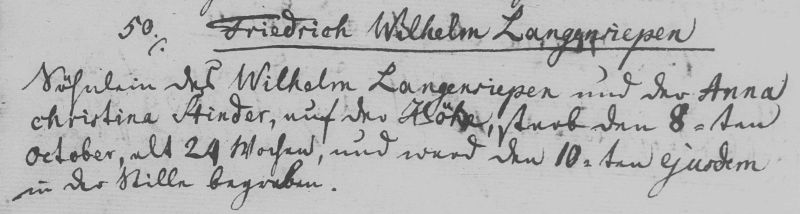 50. Friedrich Wilhelm Langensiepen
Söhnlein des Wilhelm Langensiepen und der Anna
christina Stinder, auf der Höhe, starb den 8-ten
october, alt 24 Wochen, und ward den 10-ten ejusdem
in der Stille begraben.